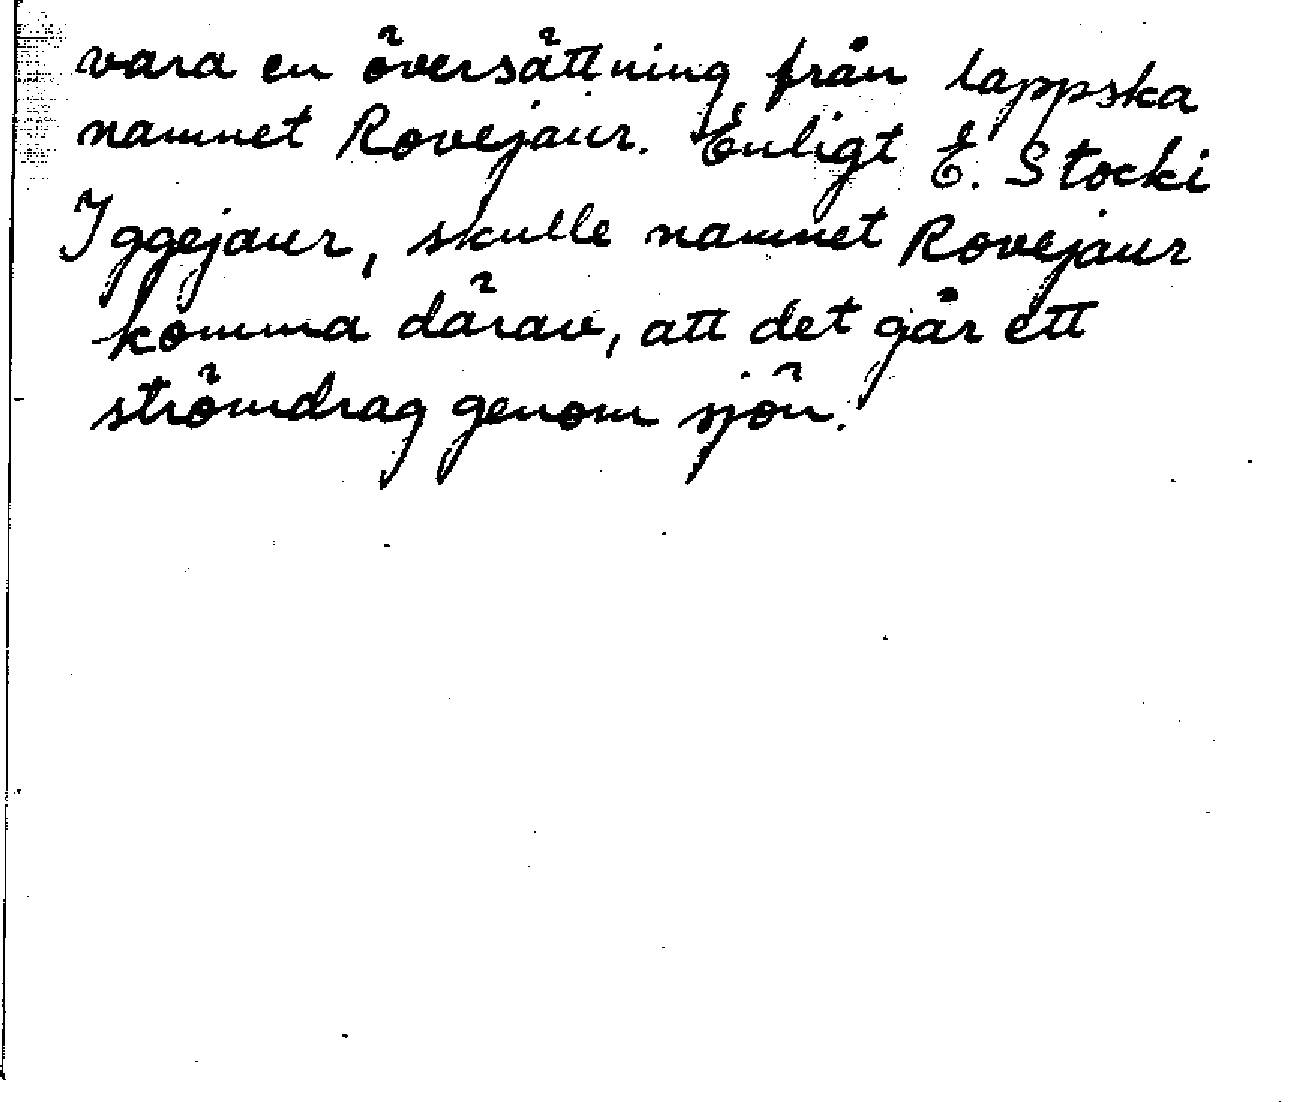 vara en översättning från lappska
namnet Rovejaur. Enligt E. Stock i
Iggejaur, skulle namnet Rovejaur
komma därav, att det går ett
strömdrag genom sjön.